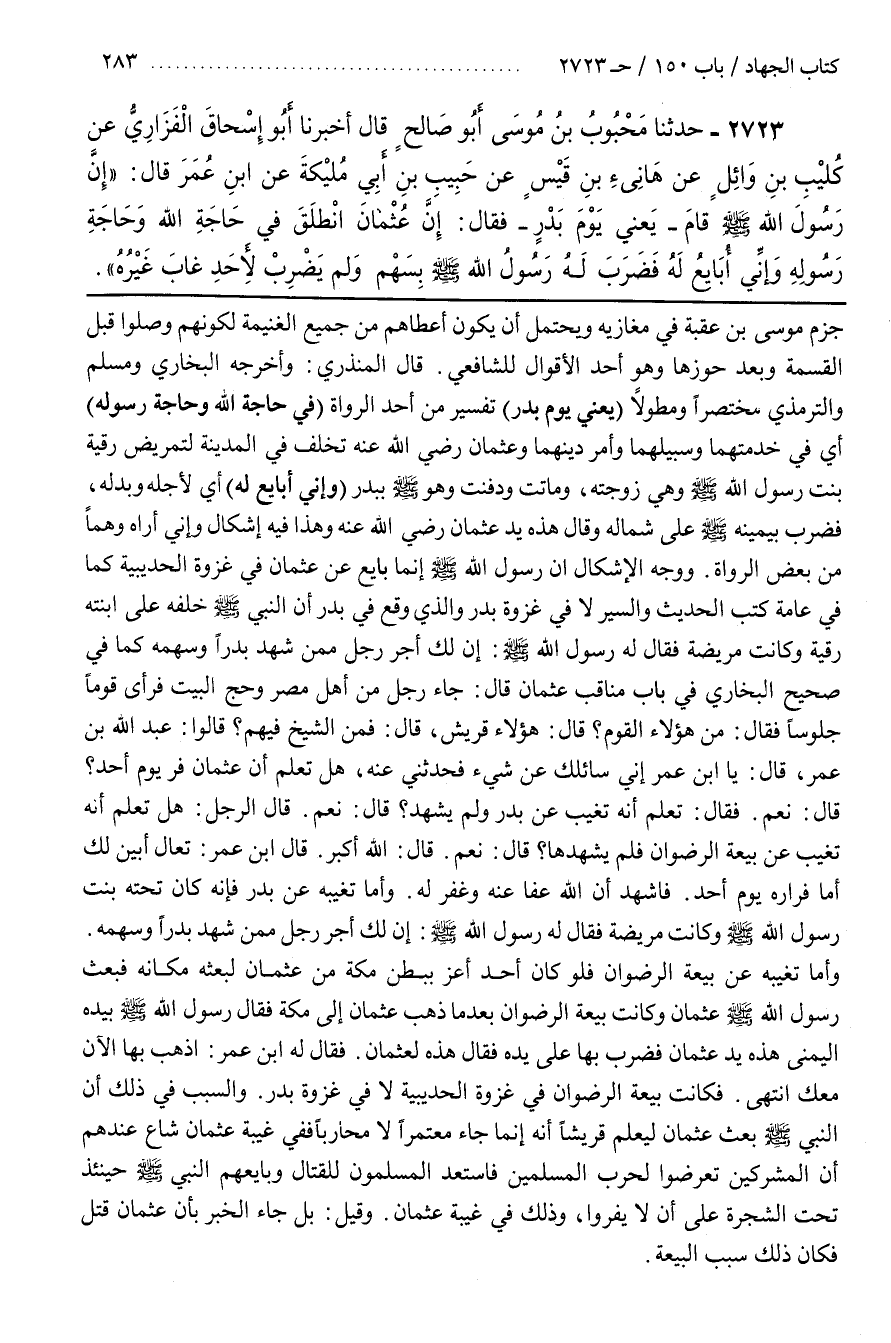 كتاب الجهاد / باب ١٥٠ / حـ ٢٧٢٣ ............................................ ٢٨٣
٢٧٢٣ ـ حدثنا مَحْبُوبُ بنُ مُوسَى أَبُو صَالحٍ قال أخبرنا أَبُو إِسْحاقَ الْفَزَارِيُّ عن
كُلَيْبِ بنِ وَائِلٍ عن هَانِىءِ بنِ قَيْسٍ عن حَبِيبِ بنِ أَبِي مُلَيْكَةَ عن ابنِ عُمَرَ قال: «إِنَّ
رَسُولَ الله ﷺ قامَ ـ يَعني يَوْمَ بَدْرٍ ـ فقال: إِنَّ عُثْمانَ انْطلَقَ في حَاجَةِ الله وَحَاجَةِ
رَسُولِهِ وَإِنِّي أُبَايعُ لَهُ فَضَرَبَ لَـهُ رَسولُ الله ﷺ بِسَهْمٍ وَلم يَضْرِبْ لِأَحَدٍ غابَ غَيْرُهُ».
جزم موسى بن عقبة في مغازيه ويحتمل أن يكون أعطاهم من جميع الغنيمة لكونهم وصلوا قبل
القسمة وبعد حوزها وهو أحد الأقوال للشافعي. قال المنذري: وأخرجه البخاري ومسلم
والترمذي مختصراً ومطولاً (يعني يوم بدر) تفسير من أحد الرواة (في حاجة الله وحاجة رسوله)
أي في خدمتهما وسبيلهما وأمر دينهما وعثمان رضي الله عنه تخلف في المدينة لتمريض رقية
بنت رسول الله ﷺ وهي زوجته، وماتت ودفنت وهو ﷺ ببدر (وإني أبايع له) أي لأجله وبدله،
فضرب بيمينه ﷺ على شماله وقال هذه يد عثمان رضي الله عنه وهذا فيه إشكال وإني أراه وهماً
من بعض الرواة. ووجه الإشكال ان رسول الله ﷺ إنما بايع عن عثمان في غزوة الحديبية كما
في عامة كتب الحديث والسير لا في غزوة بدر والذي وقع في بدر أن النبي ﷺ خلفه على ابنته
رقية وكانت مريضة فقال له رسول الله ﷺ: إن لك أجر رجل ممن شهد بدراً وسهمه كما في
صحيح البخاري في باب مناقب عثمان قال: جاء رجل من أهل مصر وحج البيت فرأى قوماً
جلوساً فقال: من هؤلاء القوم؟ قال: هؤلاء قريش، قال: فمن الشيخ فيهم؟ قالوا: عبد الله بن
عمر، قال: يا ابن عمر إني سائلك عن شيء فحدثني عنه، هل تعلم أن عثمان فر يوم أحد؟
قال: نعم. فقال: تعلم أنه تغيب عن بدر ولم يشهد؟ قال: نعم. قال الرجل: هل تعلم أنه
تغيب عن بيعة الرضوان فلم يشهدها؟ قال: نعم. قال: الله أكبر. قال ابن عمر: تعال أبين لك
أما فراره يوم أحد. فاشهد أن الله عفا عنه وغفر له. وأما تغيبه عن بدر فإنه كان تحته بنت
رسول الله ﷺ وكانت مريضة فقال له رسول الله ﷺ: إن لك أجر رجل ممن شهد بدراً وسهمه.
وأما تغيبه عن بيعة الرضوان فلو كان أحـد أعز ببـطن مكة من عثمـان لبعثه مكـانه فبعث
رسول الله ﷺ عثمان وكانت بيعة الرضوان بعدما ذهب عثمان إلى مكة فقال رسول الله ﷺ بيده
اليمنى هذه يد عثمان فضرب بها على يده فقال هذه لعثمان. فقال له ابن عمر: اذهب بها الآن
معك انتهى. فكانت بيعة الرضوان في غزوة الحديبية لا في غزوة بدر. والسبب في ذلك أن
النبي ﷺ بعث عثمان ليعلم قريشاً أنه إنما جاء معتمراً لا محارباً ففي غيبة عثمان شاع عندهم
أن المشركين تعرضوا لحرب المسلمين فاستعد المسلمون للقتال وبايعهم النبي ﷺ حينئذ
تحت الشجرة على أن لا يفروا، وذلك في غيبة عثمان. وقيل: بل جاء الخبر بأن عثمان قتل
فكان ذلك سبب البيعة.